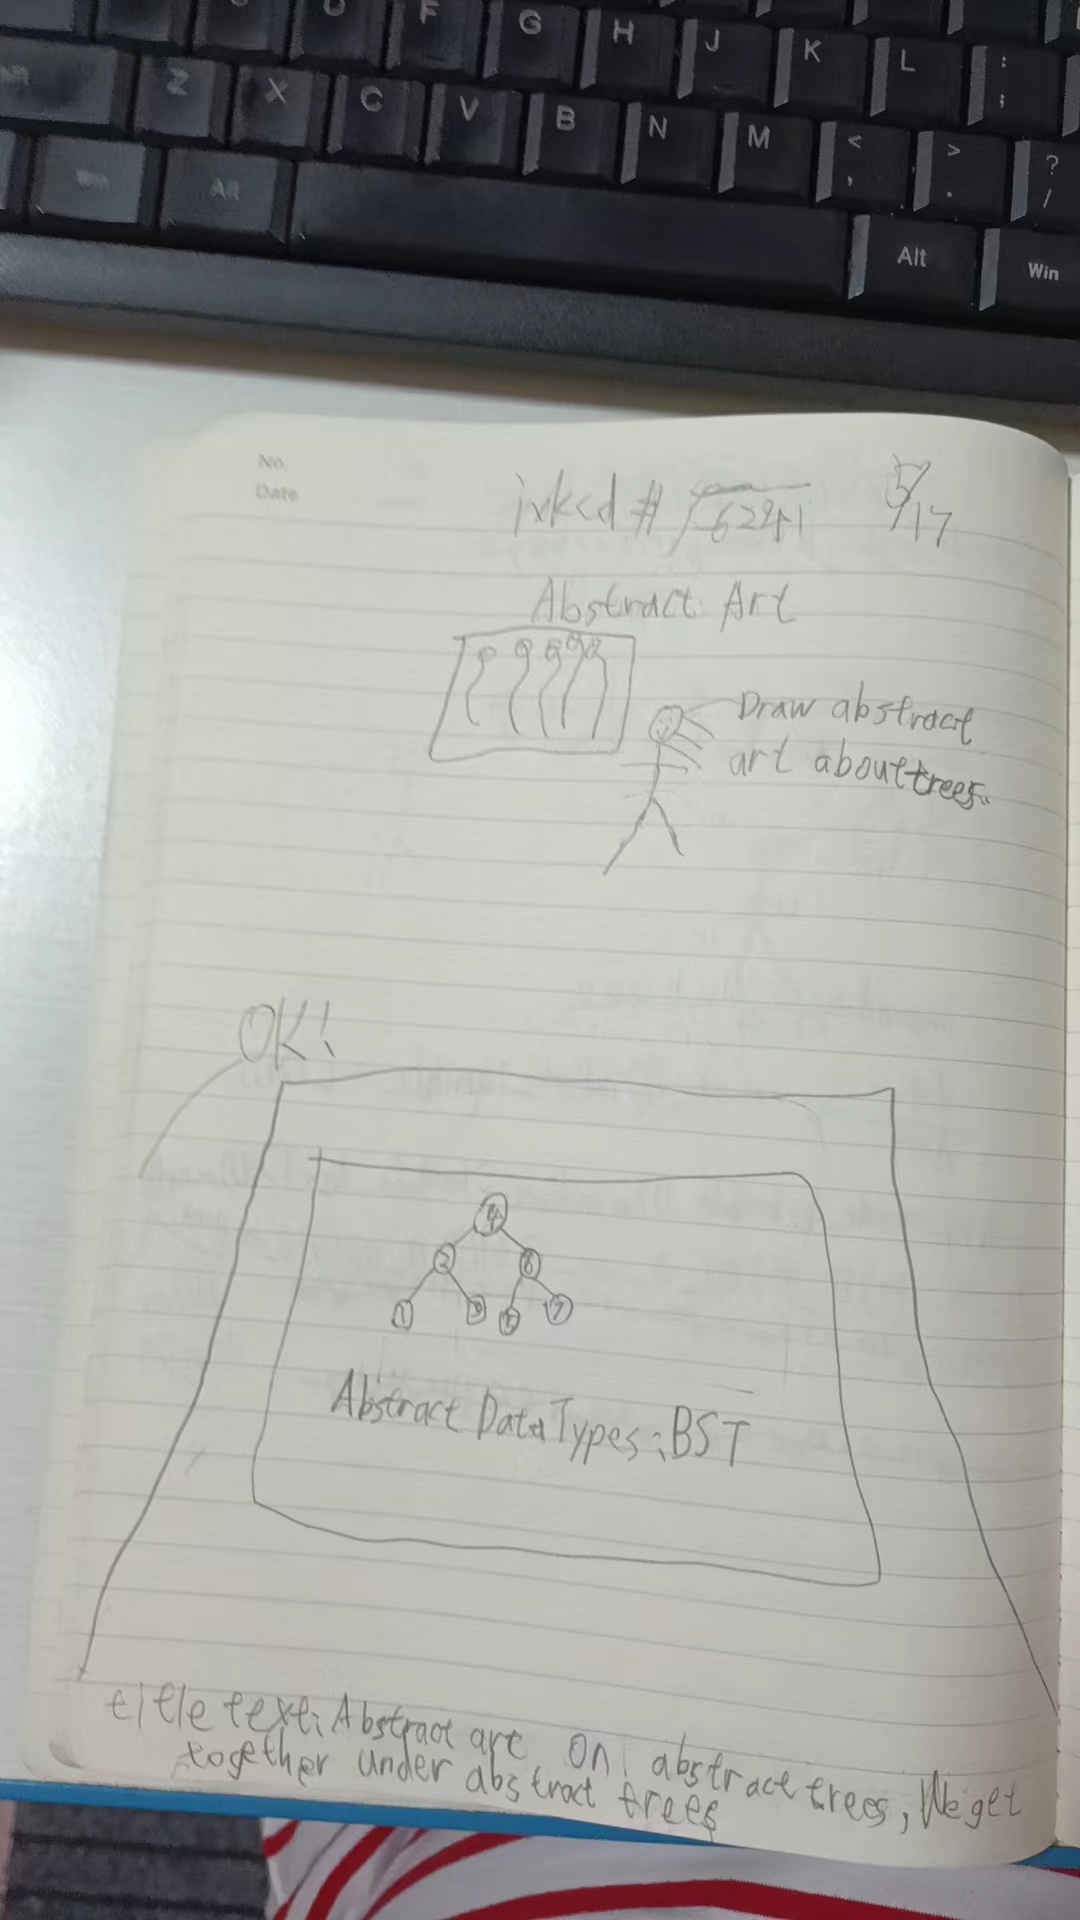 G H J K L : ;
Z X C V B N M < , > . ? /
Alt Win
No.
Date
5/17
Abstract Art
Draw abstract
art about trees..
OK!
4
2 6
1 3 5 7
Abstract Data Types: BST
title text: Abstract art on abstract trees, We get
together under abstract trees